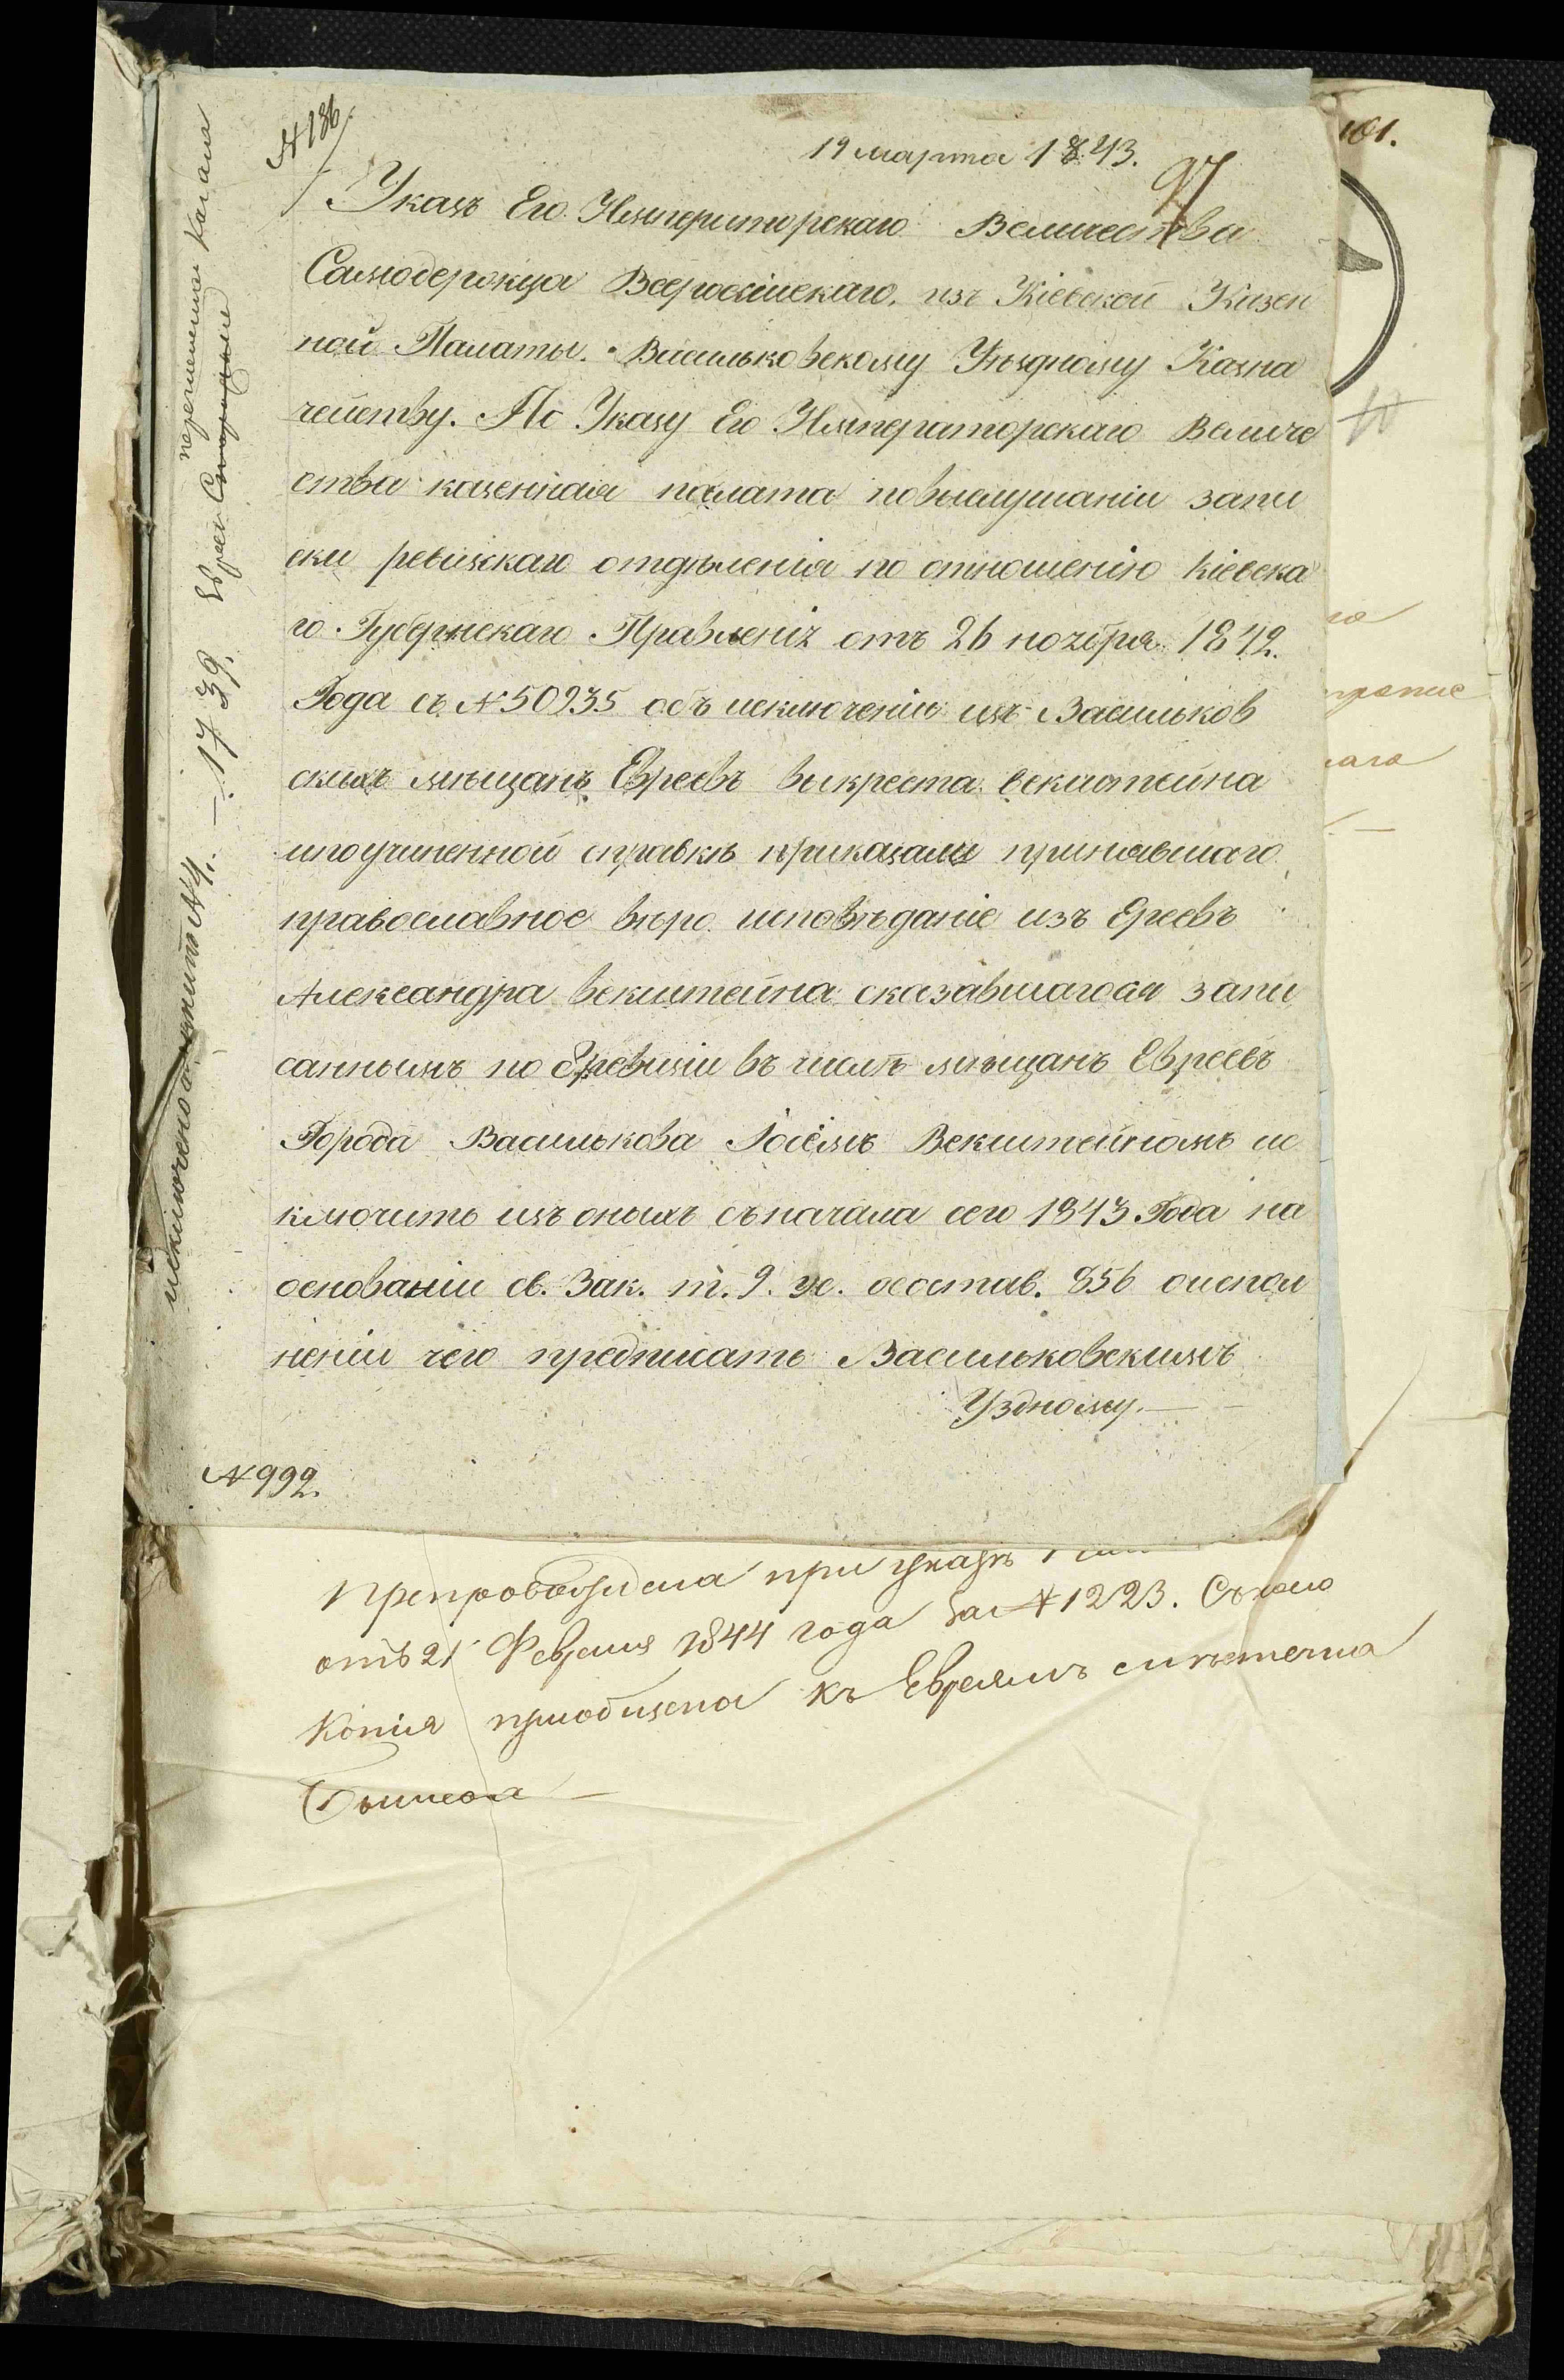 № 186
19 марта 1843.
97
Указъ Его Императорскаго Величества
Самодержца Всеросійскаго, изъ Кіевской Казен
ной Палаты. Васильковскому Уѣздному Казна
чейству. По Указу Его Императорскаго Величе
ства казенная палата повыслушаніи запи
ски ревизскаго отдѣленія по отношенію Кіевска
го Губернскаго Правленія отъ 26 ноября 1842.
Года съ № 50935 объ исключеніи изъ Васильков
скихъ мѣщанъ Евреевъ выкреста векштейна
ипоучиненной справкѣ приказали принявшаго
православное вѣро исповѣданіе изъ Ереевъ
Александра векштейна сказавшагося запи
саннымъ по 8 ревизіи въ числѣ мѣщанъ Евреевъ
Города Василькова Іосіемъ Векштейномъ ис
ключить изъ оныхъ съ начала сего 1843 Года на
основаніи св. Зак. т. 9. ус. осостав. 856 оиспол
неніи чего предписать Васильковскимъ
Уздному.—
№ 992.
исключено № 4. — 1739. Евреи Стародуме
перечненная Кагала
101.
го
прание
наго
Препровождена при указѣ
отъ 21 Февраля 1844 года за № 1223. Съ кого
Копія приобщена къ Евреямъ мѣстечка